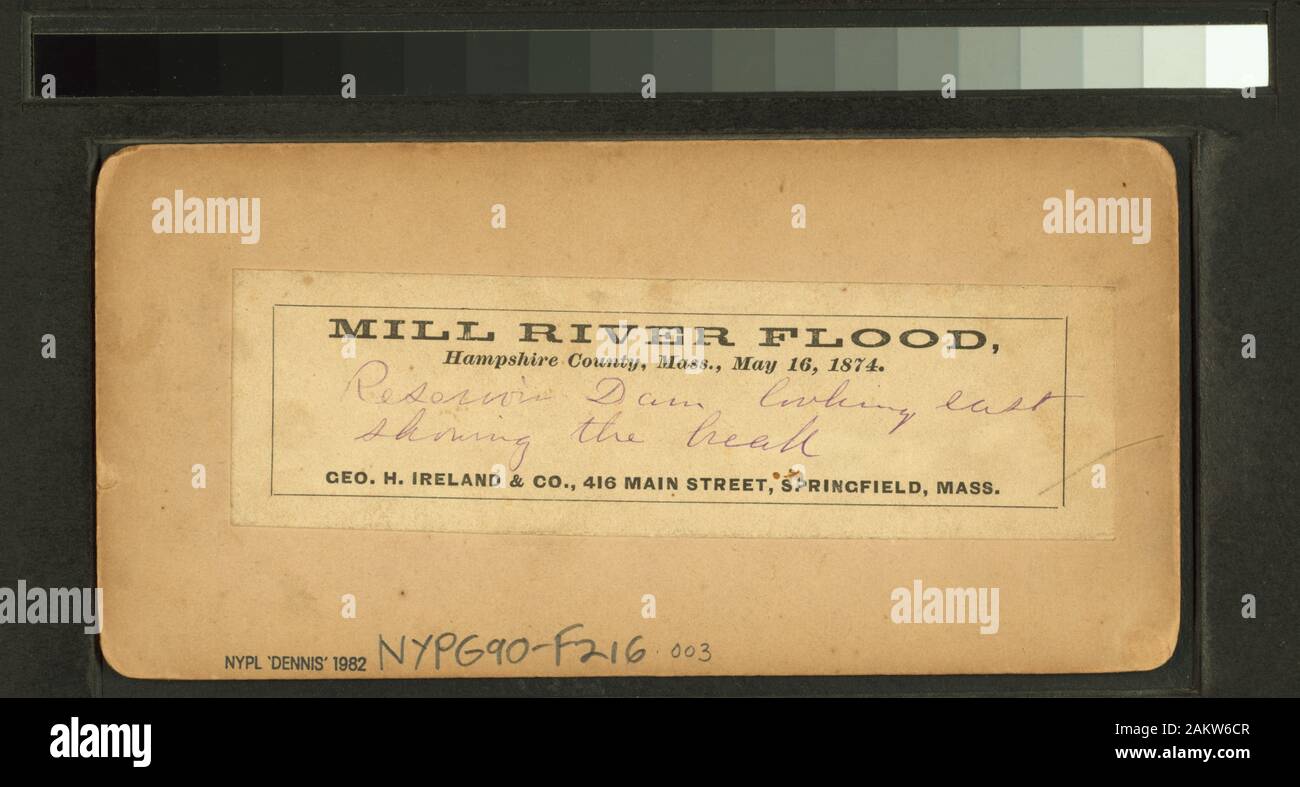 MILL RIVER FLOOD,
Hampshire County, Mass., May 16, 1874.
Reservoir Dam looking east
showing the break
GEO. H. IRELAND & CO., 416 MAIN STREET, SPRINGFIELD, MASS.
NYPL 'DENNIS' 1982 NYPG90-F216 003
alamy
alamy
alamy
alamy
alamy
Image ID: 2AKW6CR
www.alamy.com